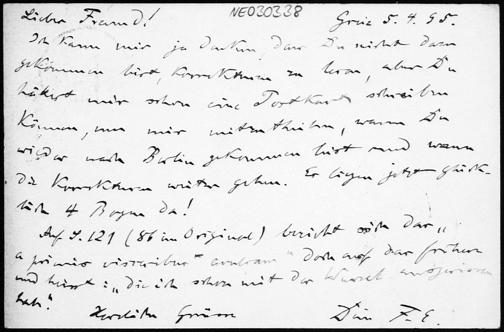 NE030338
Lieber Freund! Graz 5. 4. 95.
Ich kann mir ja denken, dass Du nicht dazu
gekommen bist, Korrekturen zu lesen, aber Du
hättest mir schon eine Postkarte schreiben
können, um mir mitzutheilen, wann Du
wieder nach Berlin gekommen bist und wann
die Korrekturen weiter gehen. Es liegen jetzt glück-
lich 4 Bogen da!
Auf S. 121 (86 im Original) bezieht sich das „
a primis visceribus" doch auf das frühere
und heisst: „die ich schon mit der Wurzel ausgerissen
hab."
Herzliche Grüsse Dein F. E.